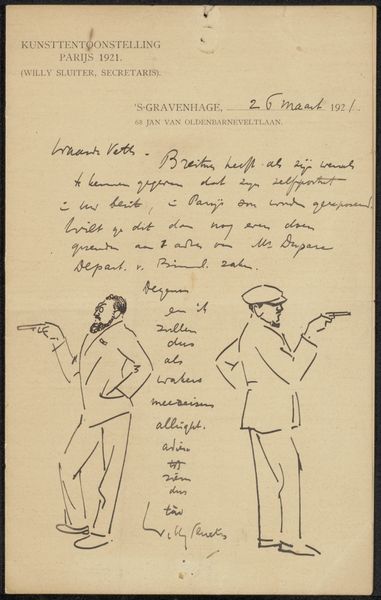 KUNSTTENTOONSTELLING
PARIJS 1921.
(WILLY SLUITER, SECRETARIS).
'S-GRAVENHAGE, 26 maart 1921.
68 JAN VAN OLDENBARNEVELTLAAN.
Waarde Veth - Breitner heeft als zijn wensch
te kennen gegeven dat zijn zelfportret
in uw bezit, in Parijs zou worden geëxposeerd.
Wilt ge dit dan nog even doen
gezenden aan t adres van Mr Duparc
Depart. v. Binnl. zaken.
Degenen
en ik
zullen
dus
als
wakers
meereizen
allright.
adieu
zien
dus
Willy Sluiter